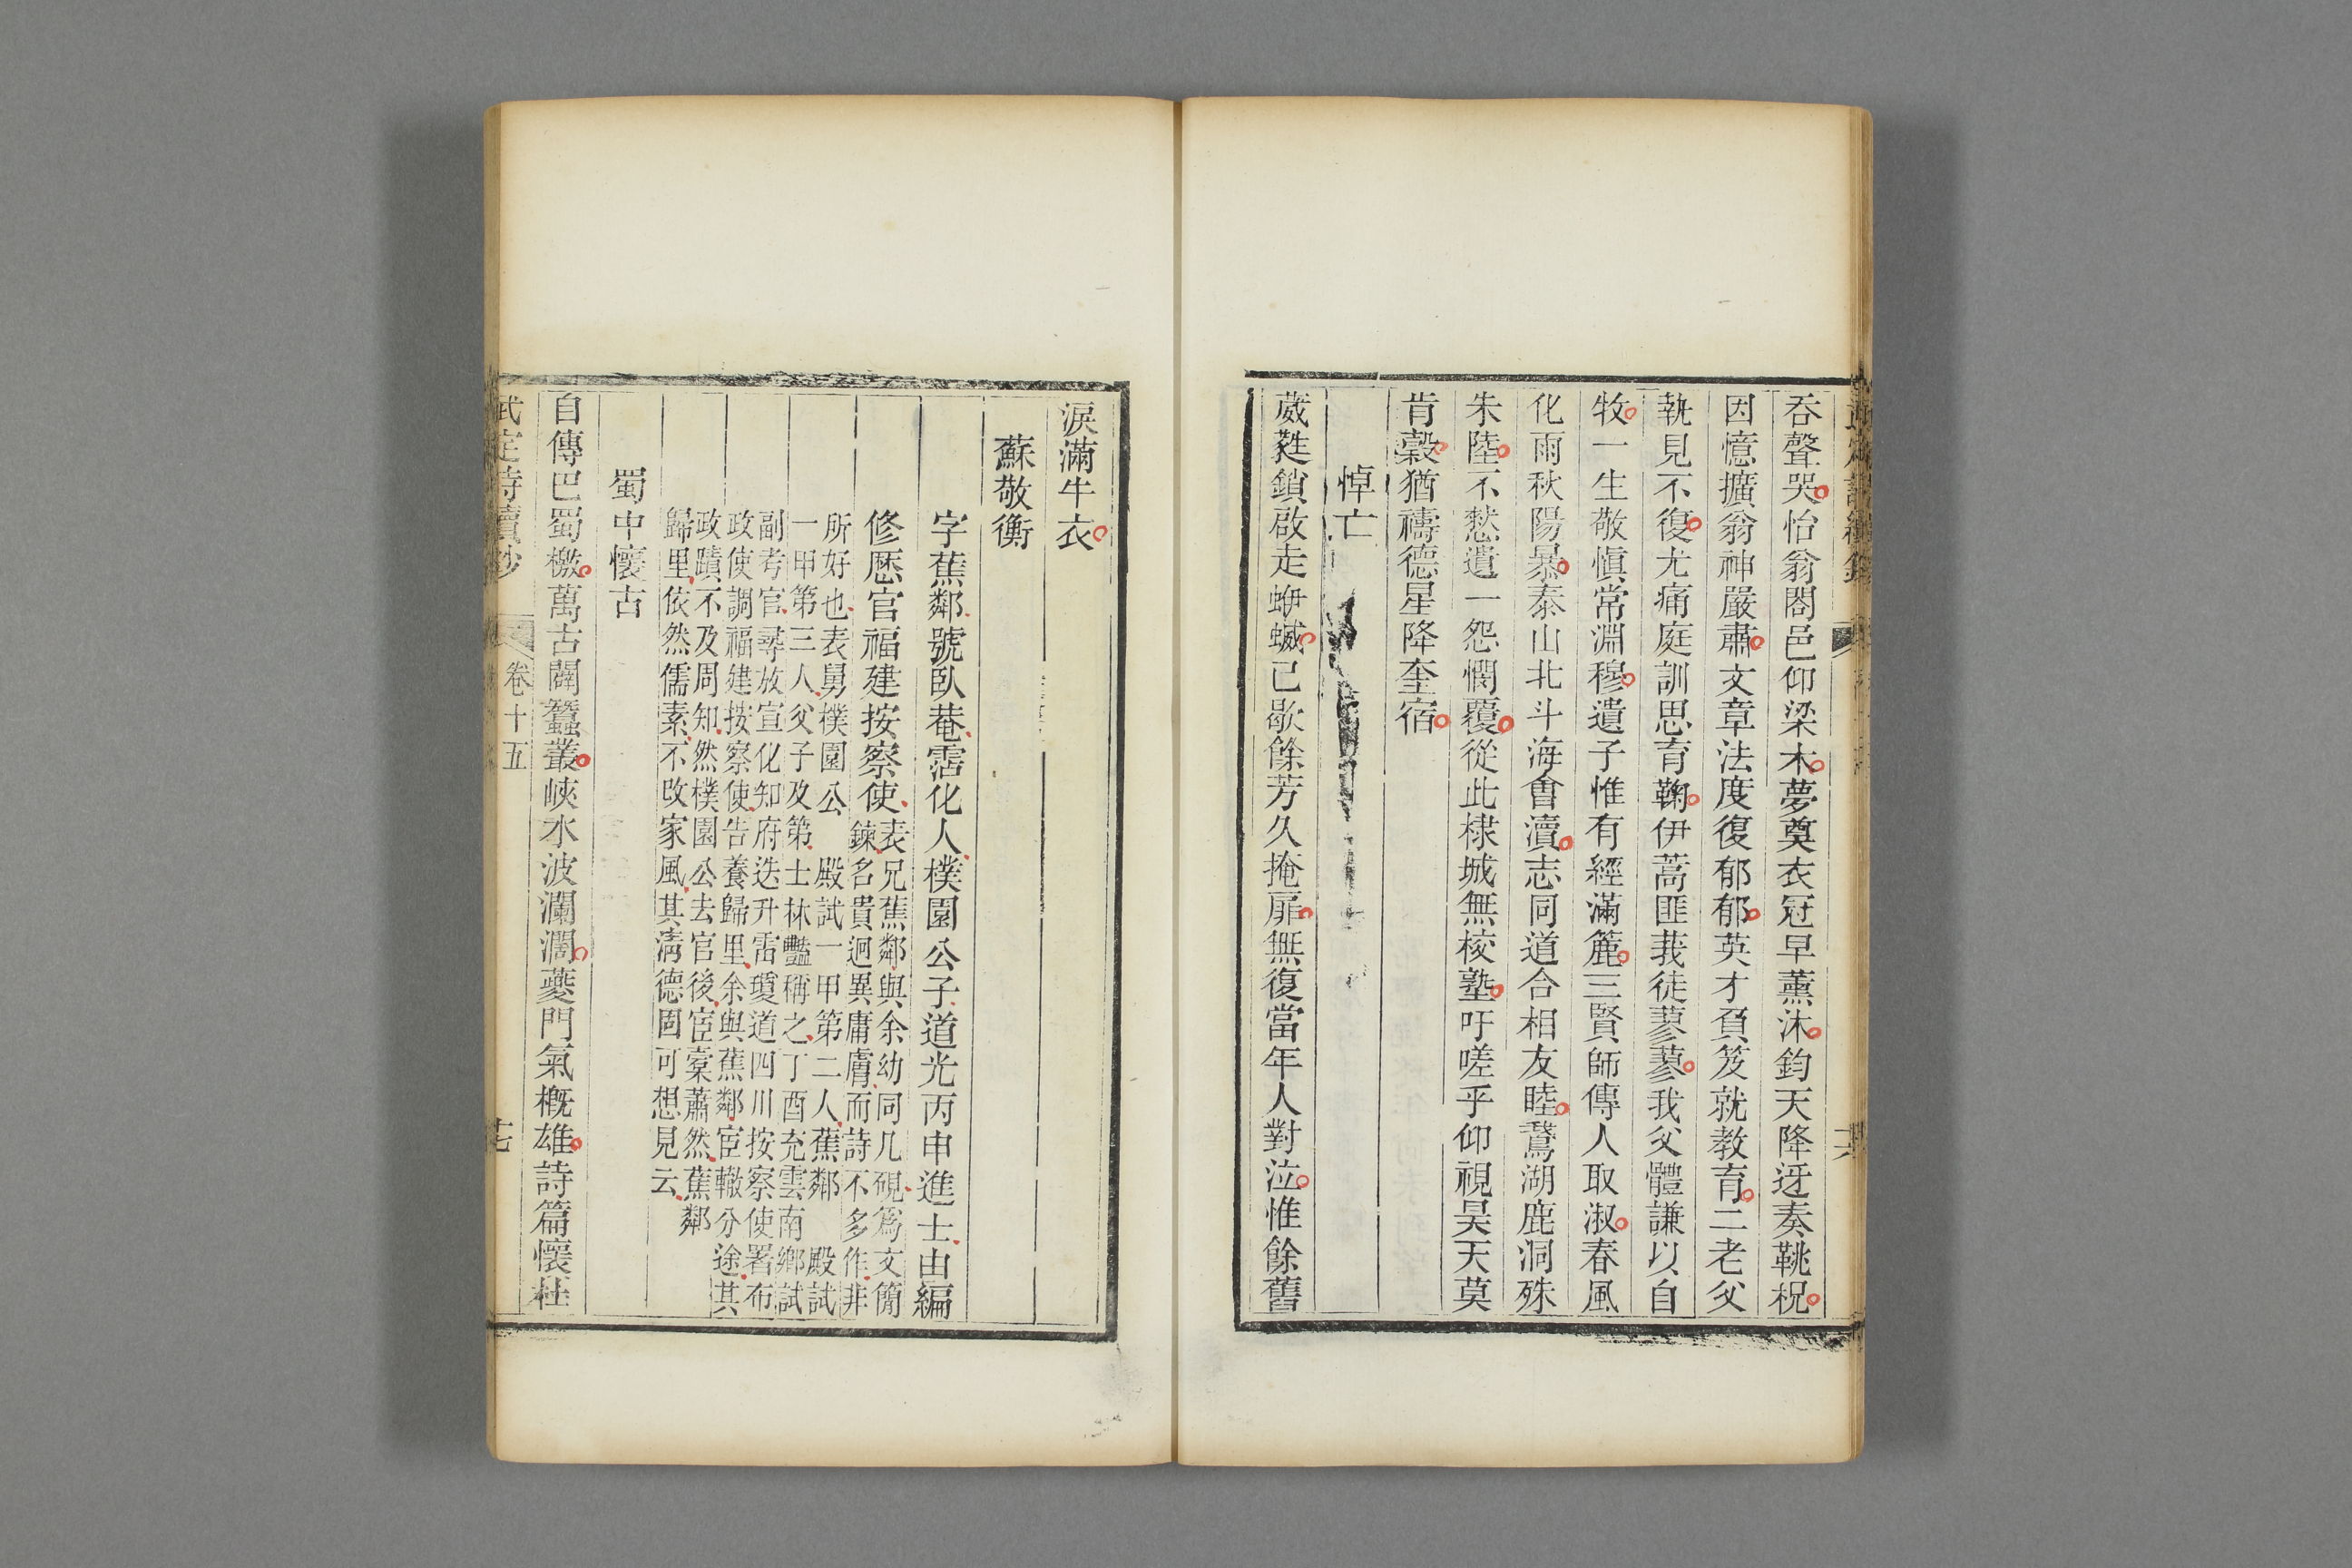 吞聲哭怡翁閤邑仰梁木夢奠衣冠早薰沐鈞天降迓奏鞉柷
因憶擴翁神嚴肅文章法度復郁郁英才負笈就教育二老父
執見不復尤痛庭訓思育鞠伊蒿匪莪徒蓼蓼我父體謙以自
牧一生敬愼常淵穆遺子惟有經滿簏三賢師傳人取淑春風
化雨秋陽暴泰山北斗海會瀆志同道合相友睦鵞湖鹿洞殊
朱陸不憖遺一怨憫覆從此棣城無校塾吁嗟乎仰視昊天莫
肯穀猶禱德星降奎宿
悼亡
葳蕤鎖啟走蛜蝛已歇餘芳久掩扉無復當年人對泣惟餘舊
淚滿牛衣
蘇敬衡
字蕉鄰號臥菴霑化人樸園公子道光丙申進士由編
修歷官福建按察使
表兄蕉鄰與余幼同几硯爲文簡
鍊名貴迥異庸膚而詩不多作非
所好也表舅樸園公 殿試一甲第二人蕉鄰 殿試
一甲第三人父子及第士林豔稱之丁酉充雲南鄉試
副考官尋放宣化知府迭升雷瓊道四川按察使署布
政使調福建按察使告養歸里余與蕉鄰宦轍分途其
政蹟不及周知然樸園公去官後宦橐蕭然蕉鄰
歸里依然儒素不改家風其淸德固可想見云
蜀中懷古
自傳巴蜀檄萬古闢蠶叢峽水波瀾濶夔門氣概雄詩篇懷杜
武定詩續鈔 卷十五 十七